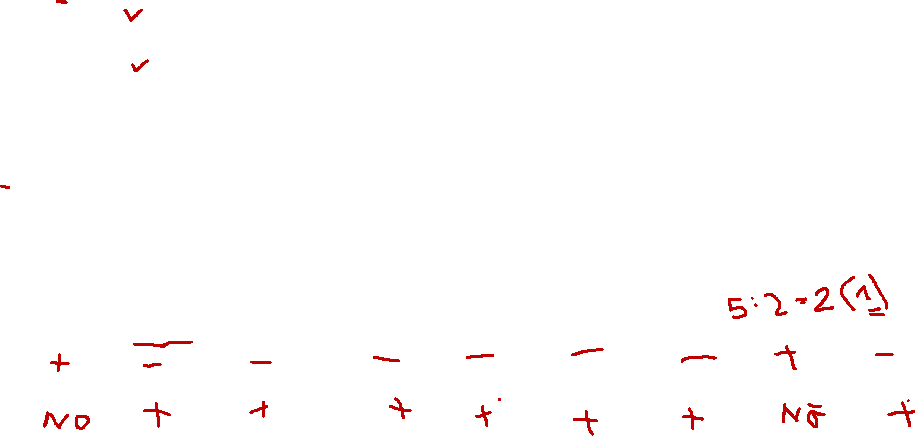 ✓
✓
5:2=2(1)
+ - - - - - - + -
NO + + + + + + NO +